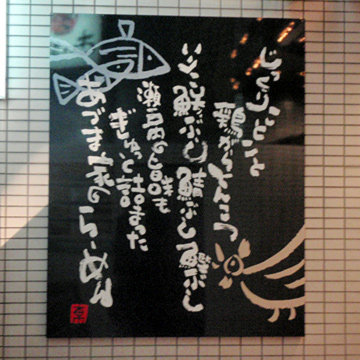 じっくりことこと
鶏がらとんこつ
いりこ鯵ぶし鯖ぶし鰹ぶし
瀬戸内の旨味も
ぎゅっと詰まった
あづま家のらーめん